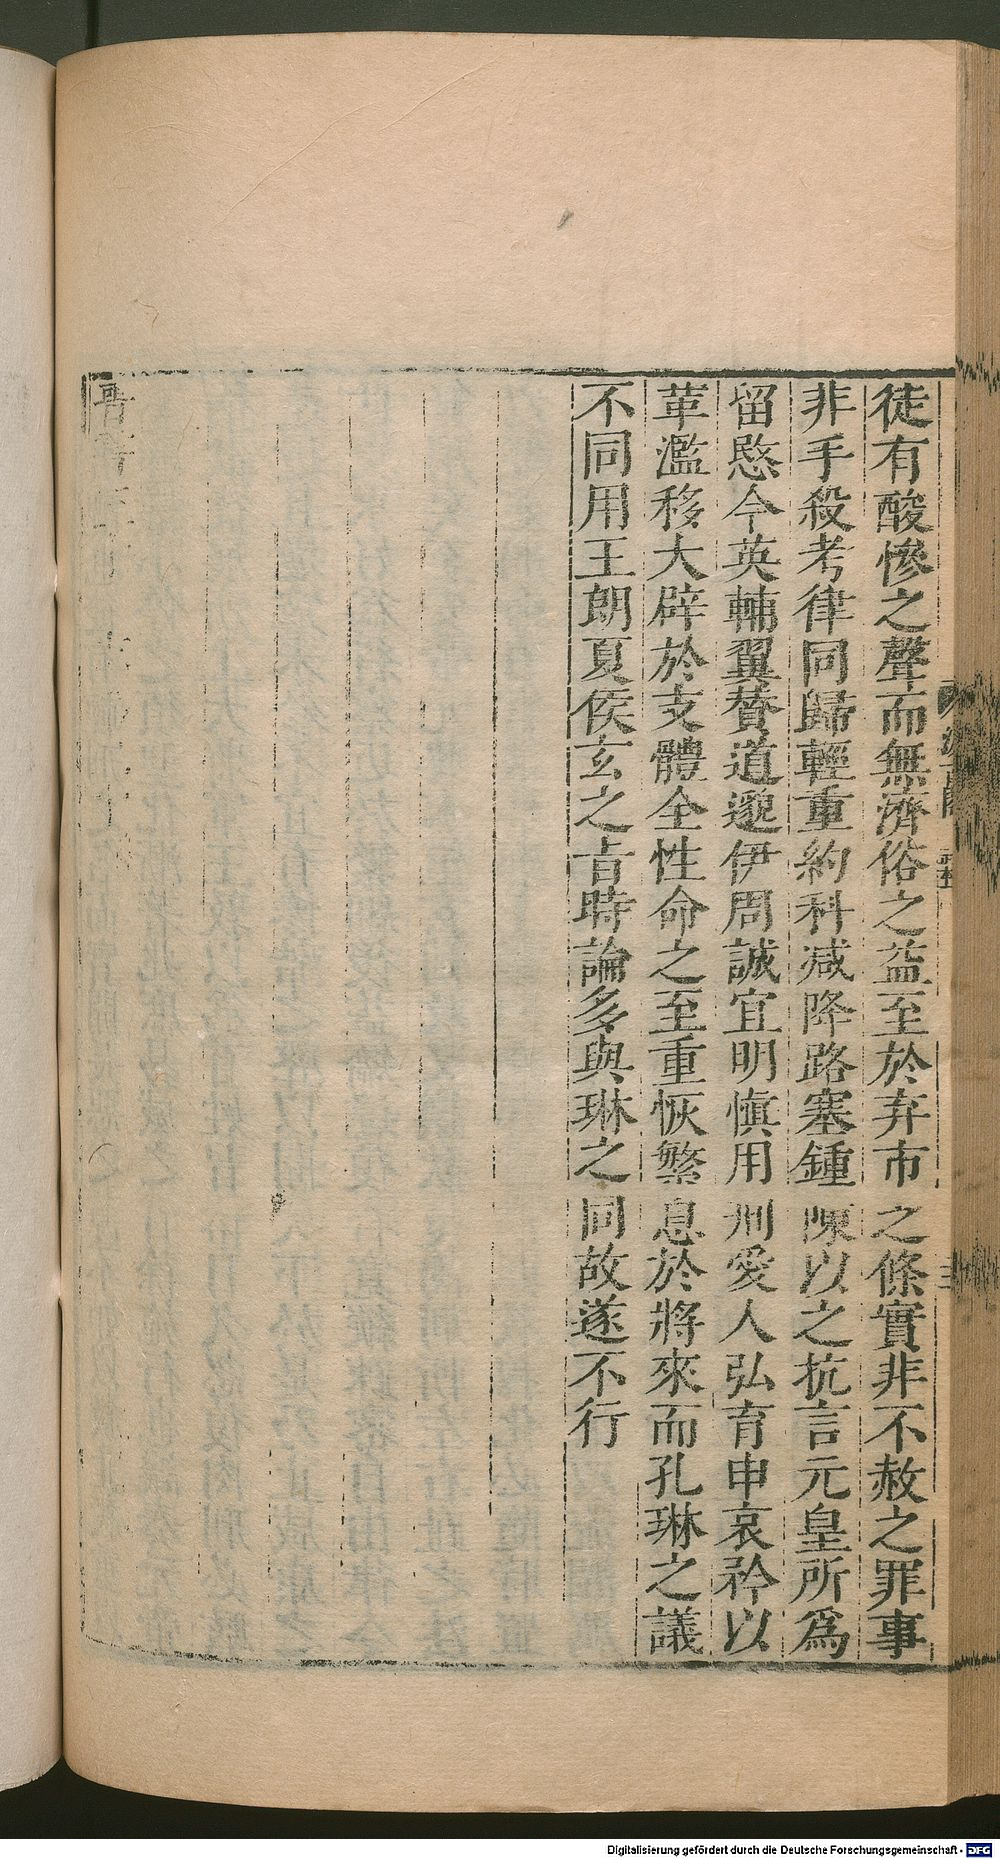 徒有酸慘之聲而無濟俗之益至於弃市之條實非不赦之罪事
非手殺考律同歸輕重約科减降路塞鍾陳以之抗言元皇所爲
留愍今英輔翼賛道邈伊周誠宜明愼用刑愛人弘育申哀矜以
革濫移大辟於支體全性命之至重恢繁息於將來而孔琳之議
不同用王朗夏侯玄之旨時論多與琳之同故遂不行
Digitalisierung gefördert durch die Deutsche Forschungsgemeinschaft - DFG